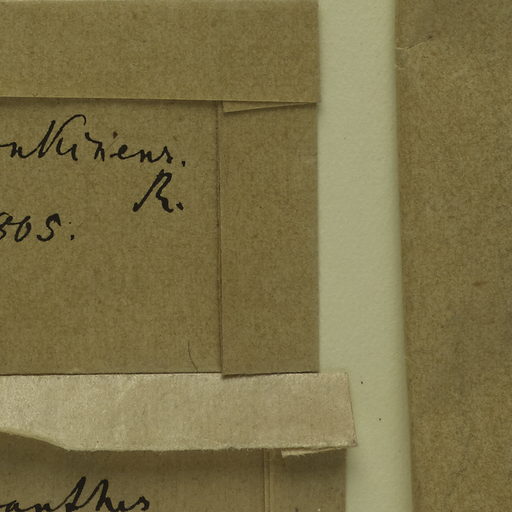 onkinens.
R.
805.
anthes